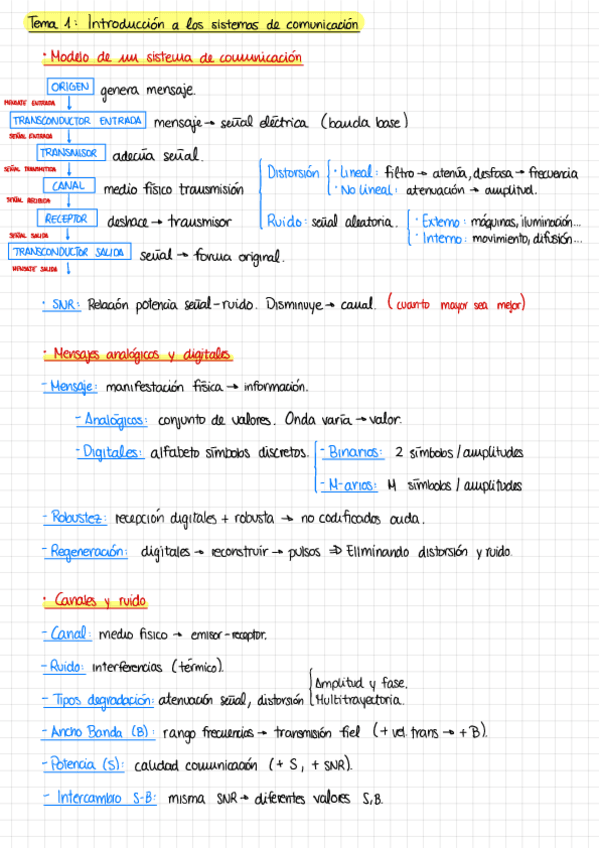 Tema 1: Introducción a los sistemas de comunicación
· Modelo de un sistema de comunicación
ORIGEN genera mensaje.
MENSAJE ENTRADA
TRANSCONDUCTOR ENTRADA mensaje → señal eléctrica (banda base)
SEÑAL ENTRADA
TRANSMISOR adecúa señal.
SEÑAL TRANSMITIDA
CANAL medio físico transmisión
Distorsión · Lineal: filtro → atenúa, desfasa → frecuencia
· No lineal: atenuación → amplitud.
SEÑAL RECIBIDA
RECEPTOR deshace → transmisor
Ruido: señal aleatoria. · Externo: máquinas, iluminación...
· Interno: movimiento, difusión...
SEÑAL SALIDA
TRANSCONDUCTOR SALIDA señal → forma original.
MENSAJE SALIDA
· SNR: Relación potencia señal-ruido. Disminuye → canal. (cuanto mayor sea mejor)
· Mensajes analógicos y digitales
- Mensaje: manifestación física → información.
- Analógicos: conjunto de valores. Onda varía → valor.
- Digitales: alfabeto símbolos discretos. - Binarios: 2 símbolos / amplitudes
- M-arios: M símbolos / amplitudes
- Robustez: recepción digitales + robusta → no codificados onda.
- Regeneración: digitales → reconstruir → pulsos ⇒ Eliminando distorsión y ruido.
· Canales y ruido
- Canal: medio físico → emisor-receptor.
- Ruido: interferencias (térmico).
- Tipos degradación: atenuación señal, distorsión Amplitud y fase.
Multitrayectoria.
- Ancho Banda (B): rango frecuencias → transmisión fiel (+ vel. trans → + B).
- Potencia (S): calidad comunicación (+ S, + SNR).
- Intercambio S-B: misma SNR → diferentes valores S,B.